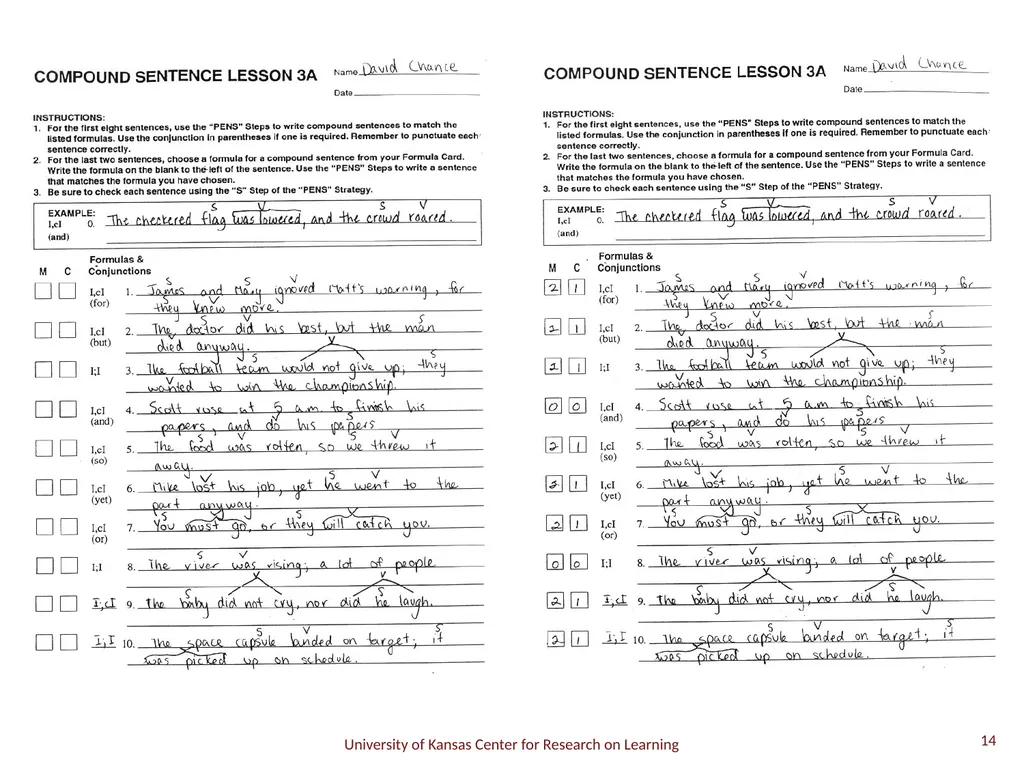 COMPOUND SENTENCE LESSON 3A
Name David Chance
Date
INSTRUCTIONS:
1. For the first eight sentences, use the "PENS" Steps to write compound sentences to match the
listed formulas. Use the conjunction in parentheses if one is required. Remember to punctuate each
sentence correctly.
2. For the last two sentences, choose a formula for a compound sentence from your Formula Card.
Write the formula on the blank to the left of the sentence. Use the "PENS" Steps to write a sentence
that matches the formula you have chosen.
3. Be sure to check each sentence using the "S" Step of the "PENS" Strategy.
S V S V
EXAMPLE:
I,cI 0. The checkered flag was lowered, and the crowd roared.
(and)
Formulas &
M C Conjunctions
S S V
I,cI 1. James and Mary ignored Matt's warning, for
(for) they knew more.
S V S
I,cI 2. The doctor did his best, but the man
(but) died anyway.
V S V S
I;I 3. The football team would not give up; they
wanted to win the championship.
I,cI 4. Scott rose at 5 a.m. to finish his
(and) papers, and do his papers
S V S V
I,cI 5. The food was rotten, so we threw it
(so) away.
V S V
I,cI 6. Mike lost his job, yet he went to the
(yet) part anyway.
S V S V
I,cI 7. You must go, or they will catch you.
(or)
S V
I;I 8. The river was rising; a lot of people
S V V S
I,cI 9. The baby did not cry, nor did he laugh.
S V S
I;I 10. The space capsule landed on target; it
was picked up on schedule.
COMPOUND SENTENCE LESSON 3A
Name David Chance
Date
INSTRUCTIONS:
1. For the first eight sentences, use the "PENS" Steps to write compound sentences to match the
listed formulas. Use the conjunction in parentheses if one is required. Remember to punctuate each
sentence correctly.
2. For the last two sentences, choose a formula for a compound sentence from your Formula Card.
Write the formula on the blank to the left of the sentence. Use the "PENS" Steps to write a sentence
that matches the formula you have chosen.
3. Be sure to check each sentence using the "S" Step of the "PENS" Strategy.
S V S V
EXAMPLE:
I,cI 0. The checkered flag was lowered, and the crowd roared.
(and)
Formulas &
M C Conjunctions
S S V
2 1 I,cI 1. James and Mary ignored Matt's warning, for
(for) they knew more.
S V S
2 1 I,cI 2. The doctor did his best, but the man
(but) died anyway.
V S V S
2 1 I;I 3. The football team would not give up; they
wanted to win the championship.
0 0 I,cI 4. Scott rose at 5 a.m to finish his
(and) papers, and do his papers
S V S V
2 1 I,cI 5. The food was rotten, so we threw it
(so) away.
V S V
2 1 I,cI 6. Mike lost his job, yet he went to the
(yet) part anyway.
S V S V
2 1 I,cI 7. You must go, or they will catch you.
(or)
S V
0 0 I;I 8. The river was rising; a lot of people
S V V S
2 1 I,cI 9. The baby did not cry, nor did he laugh.
S V S
2 1 I;I 10. The space capsule landed on target; it
was picked up on schedule.
University of Kansas Center for Research on Learning
14